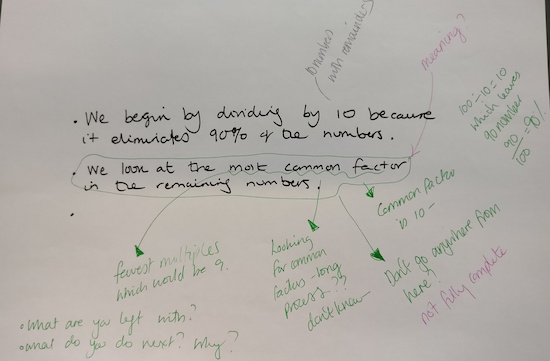 10 numbers
with remainders
meaning?
100÷10=10
which leaves
90 number
90/100 = 90%!
• We begin by dividing by 10 because
it eliminates 90% of the numbers.
• We look at the most common factor
in the remaining numbers.
•
Common factor
is 10 -
fewest multiples
which would be 9.
Looking
for common
factors - long
process??
don't know
Don't go anywhere from
here?
not fully complete
• What are you left with?
• what do you do next? Why?